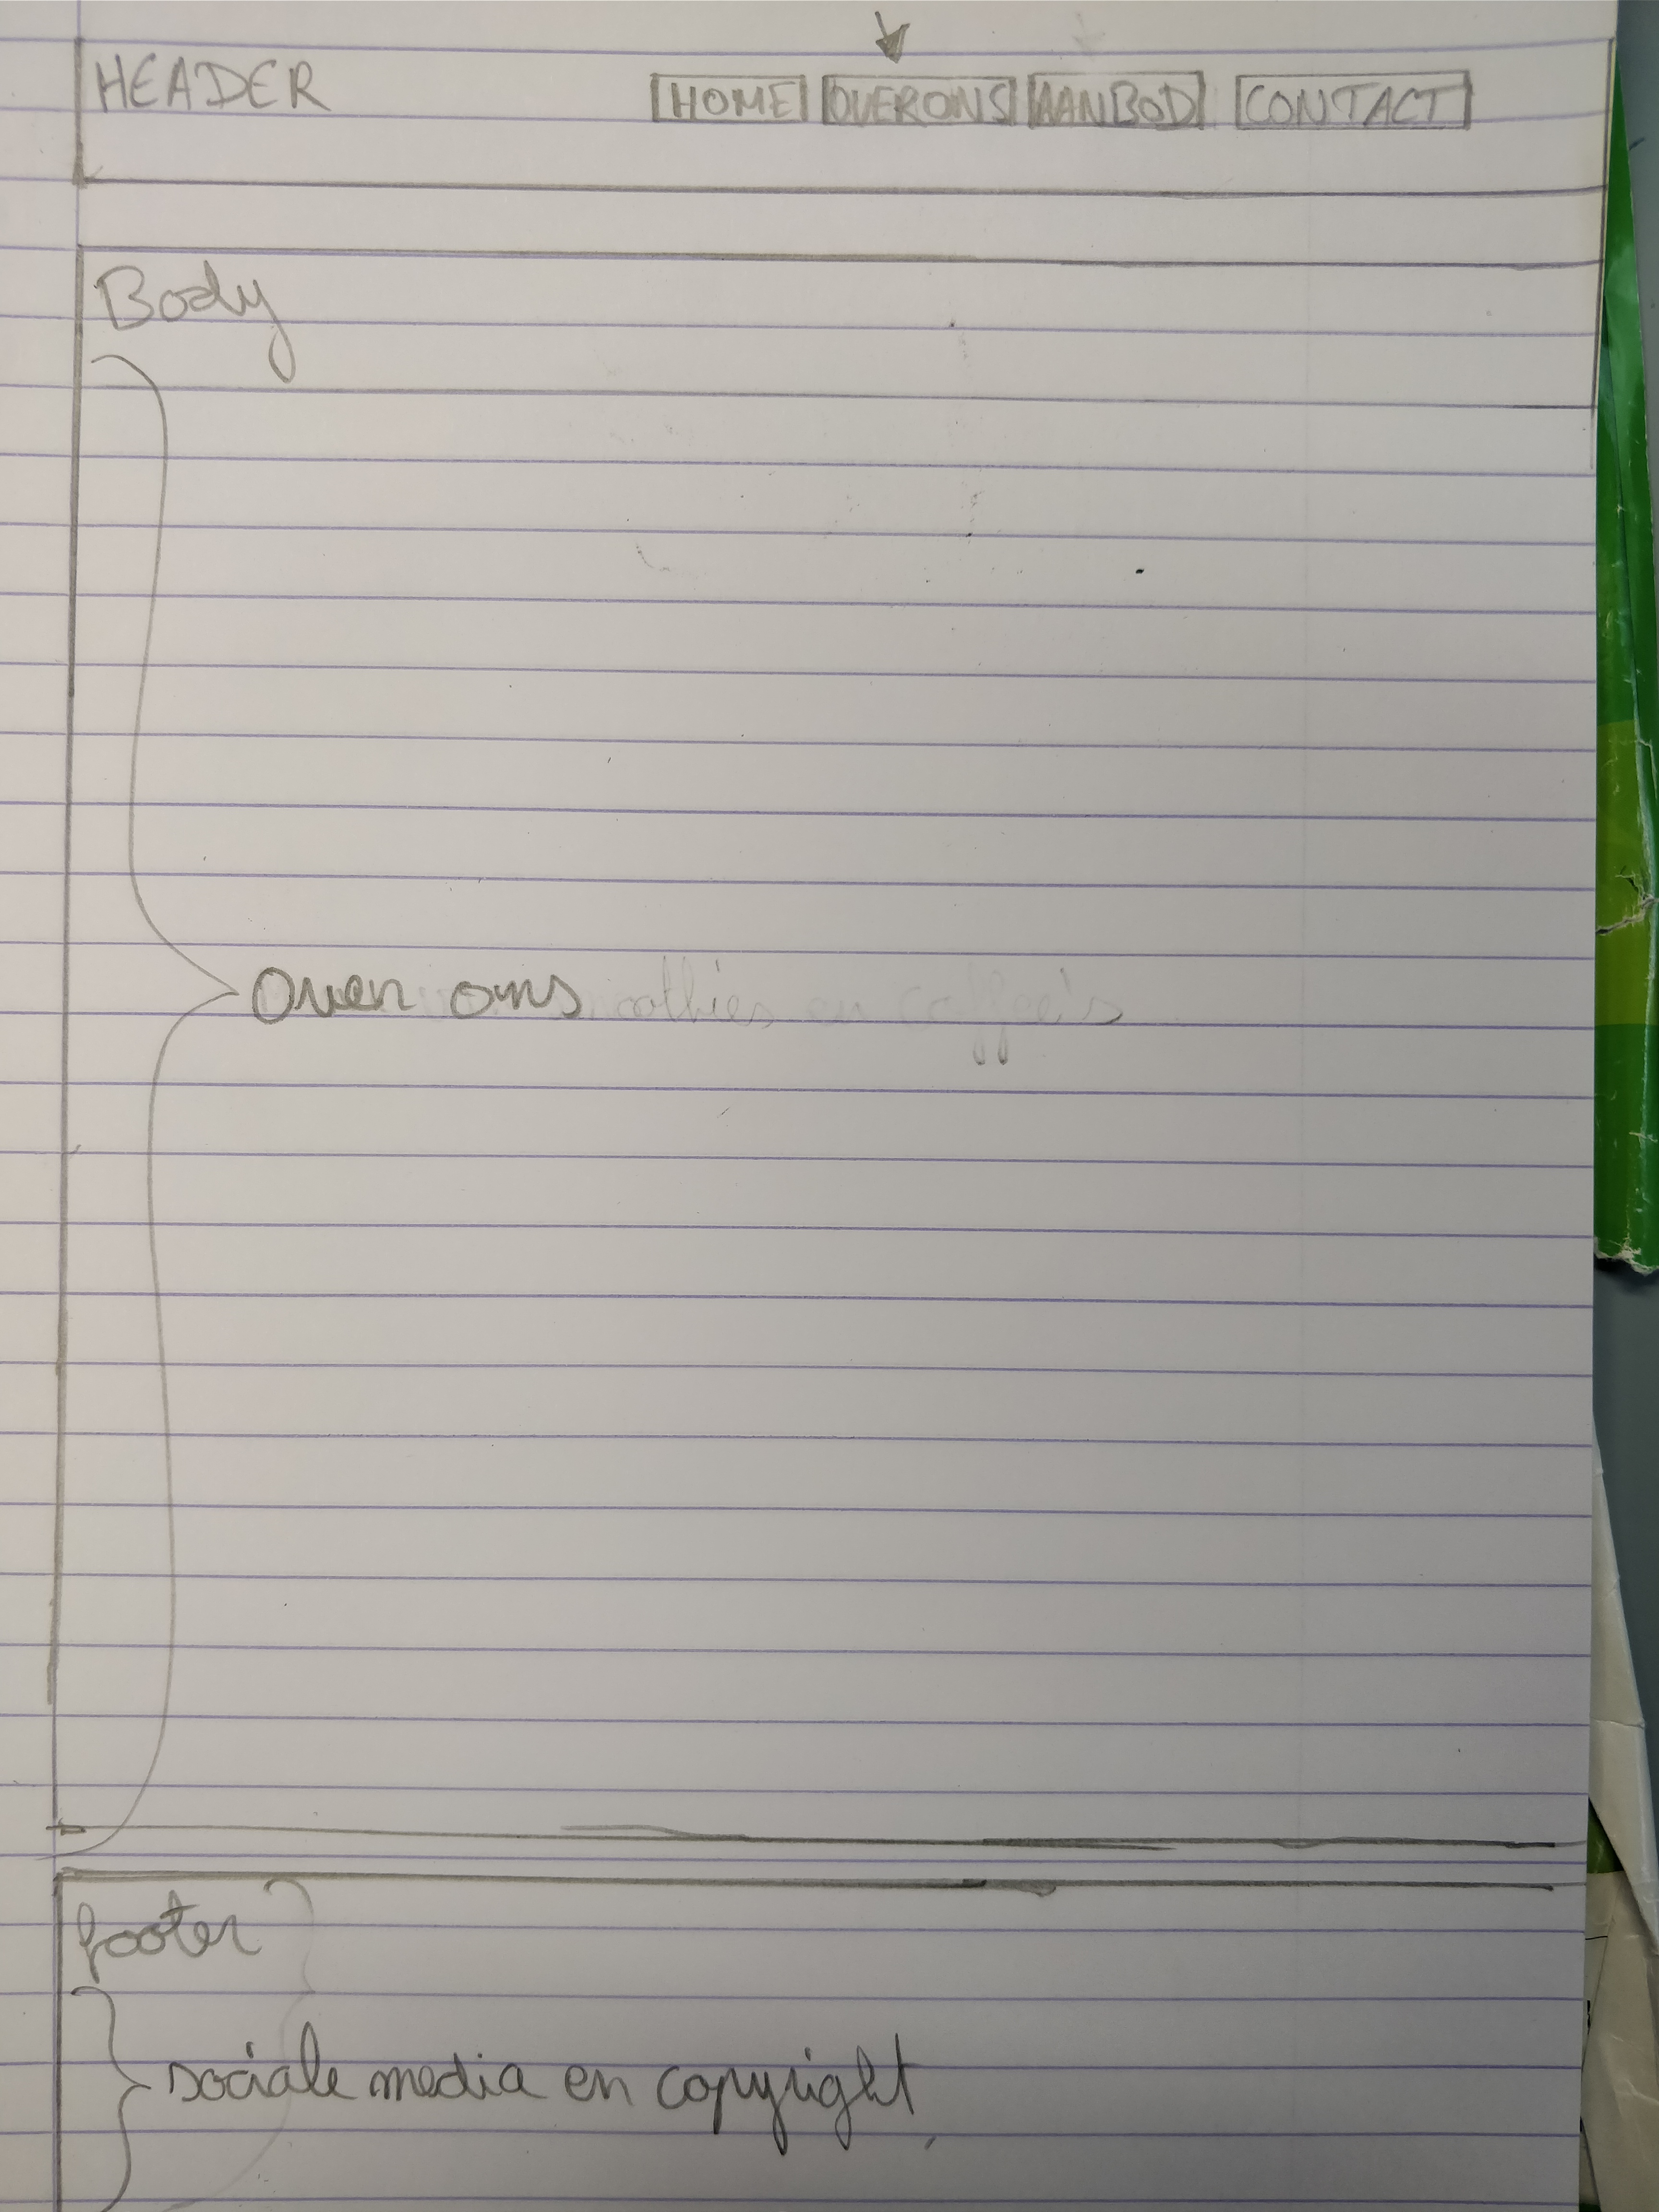 HEADER HOME OVER ONS AANBOD CONTACT
Body
Over ons
footer
sociale media en copyright